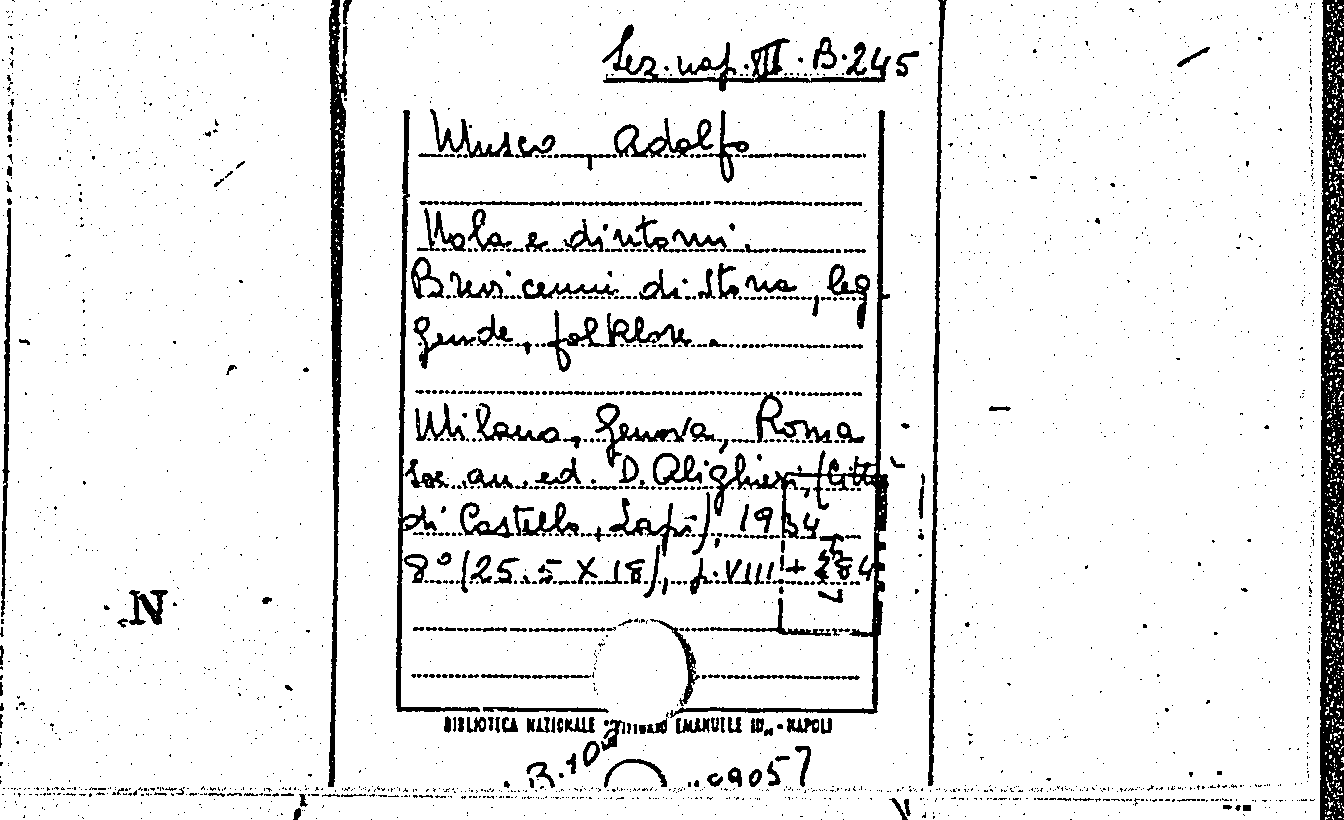 Sez. nap. VII. B. 245
Musco, Adolfo
Nola e dintorni.
Brevi cenni di storia, leg
gende, folklore.
Milano, Genova, Roma
Soc. an. ed. D. Alighieri, (Città
di Castello, Lapi), 1934
8° (25.5 X 18), p. VIII +
N
BIBLIOTECA NAZIONALE "VITTORIO EMANUELE III" - NAPOLI